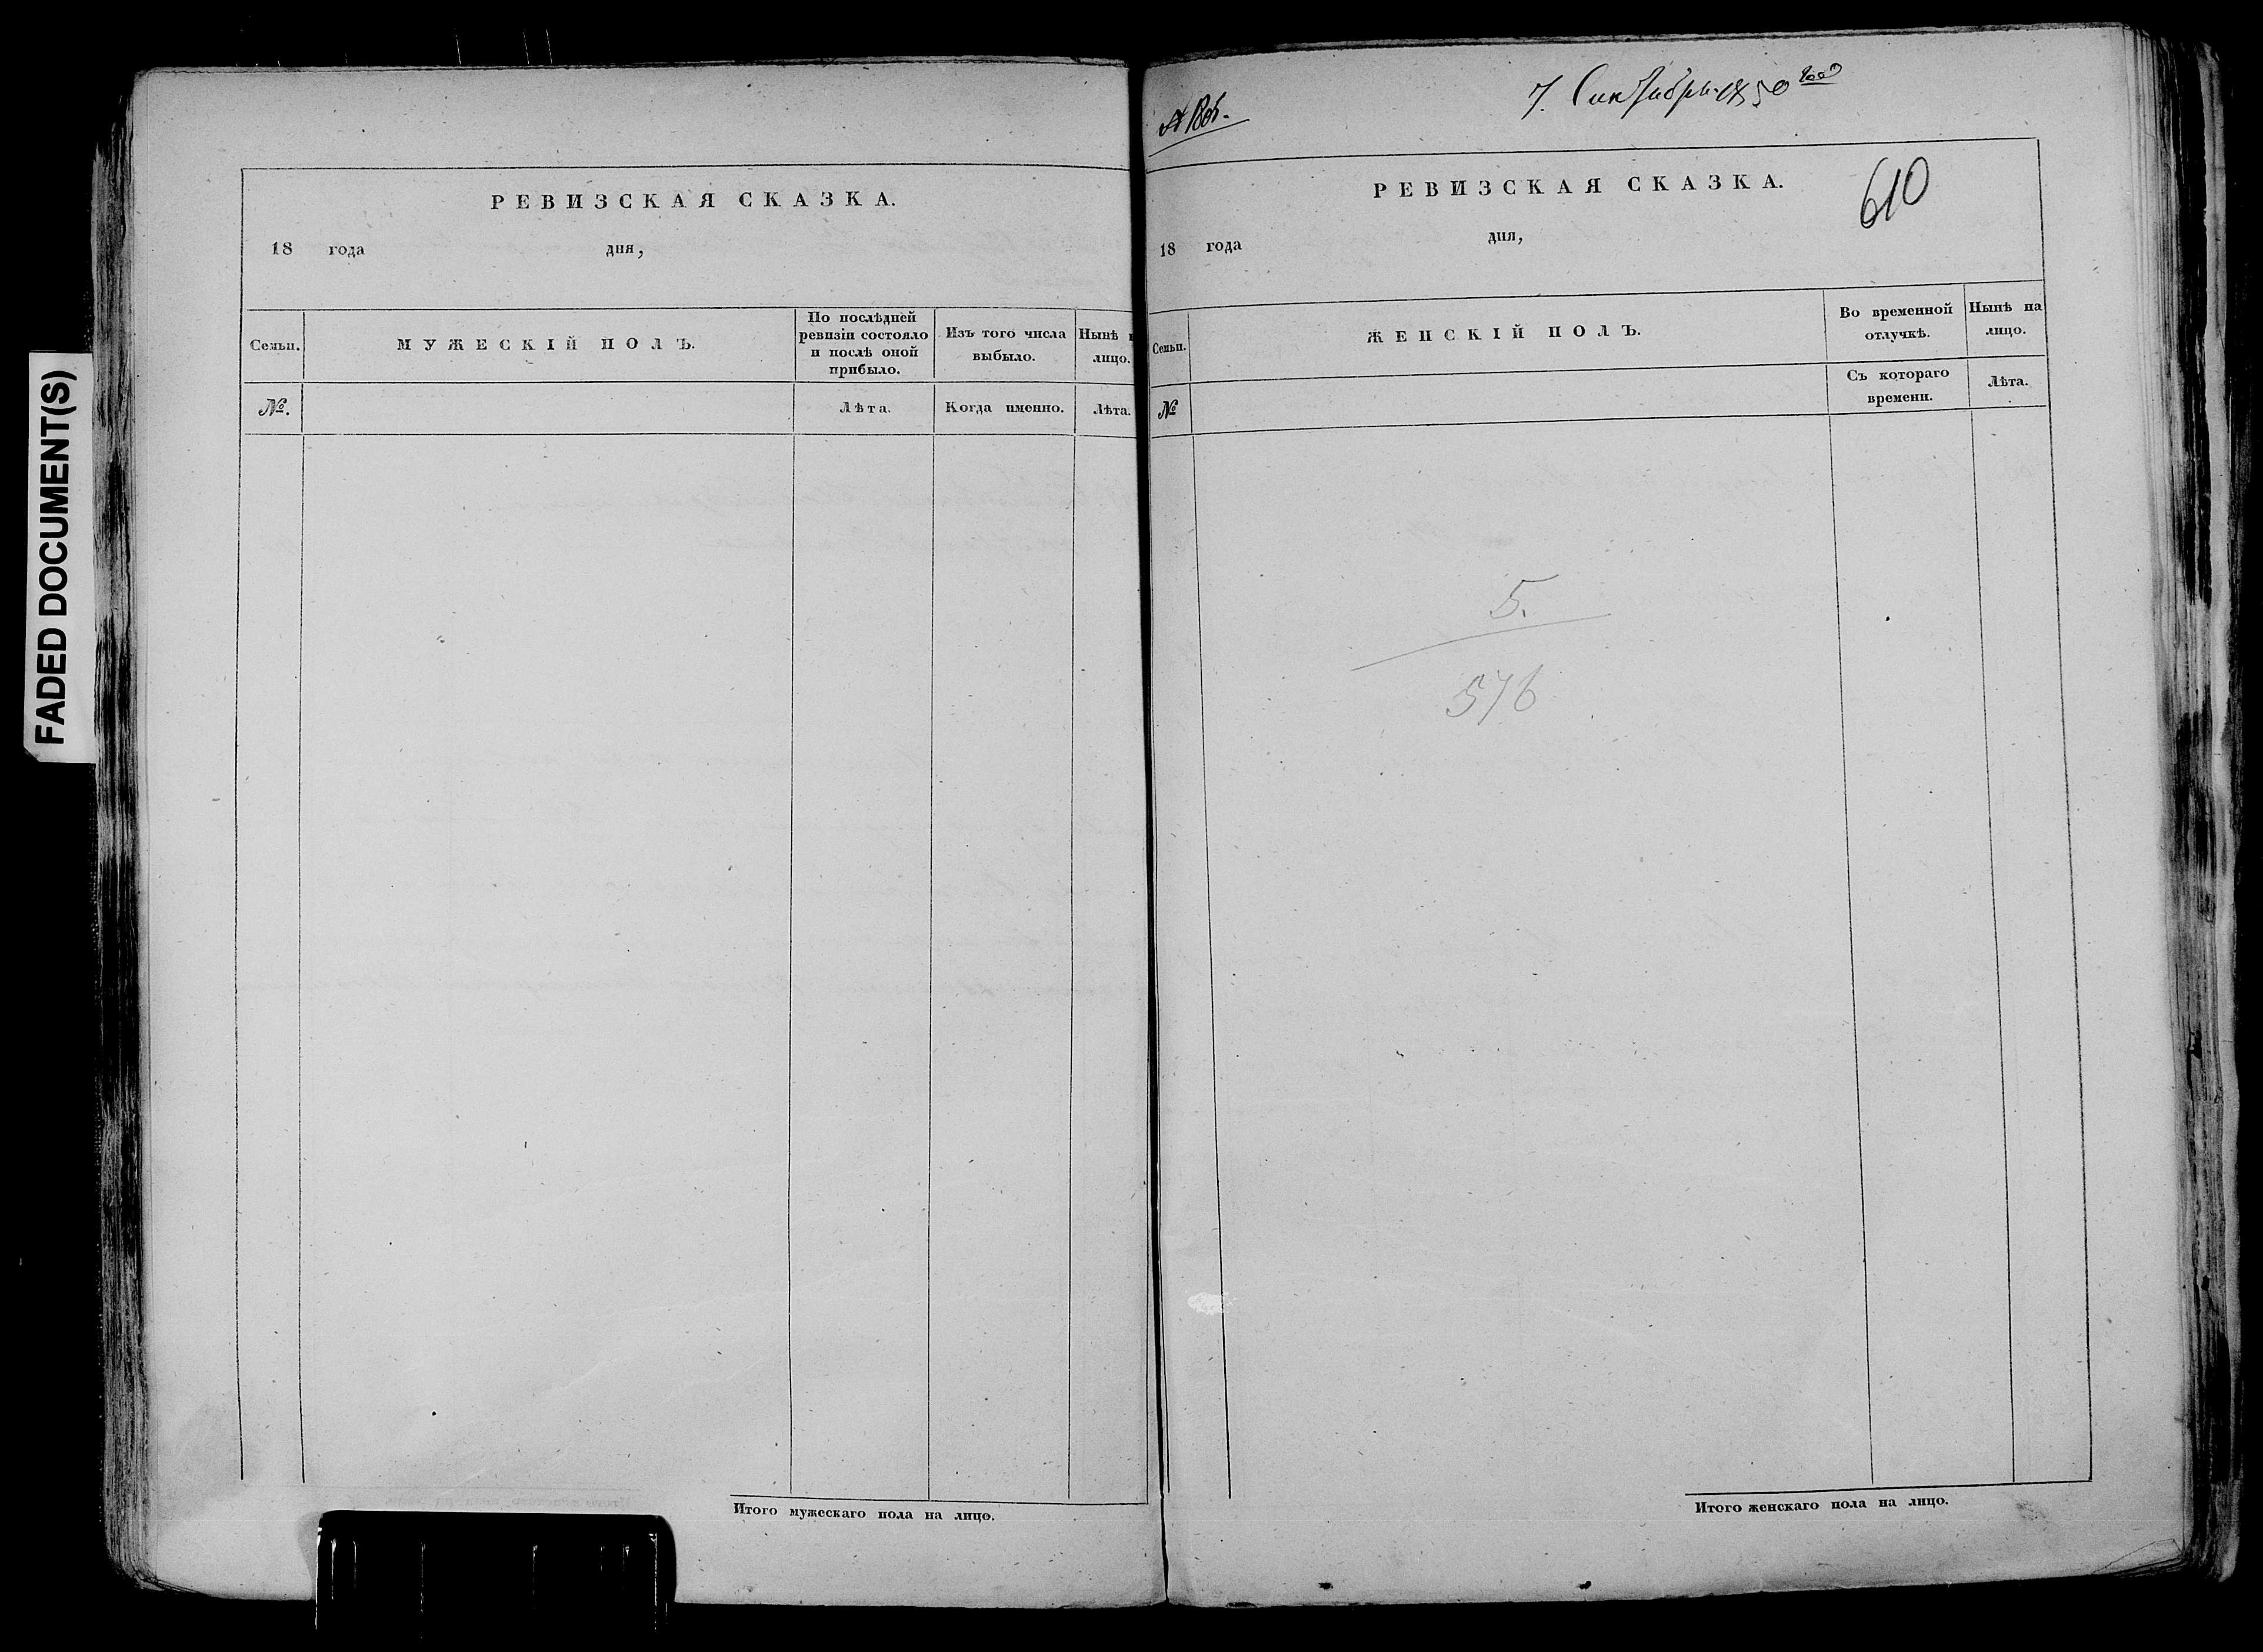 FADED DOCUMENT(S)
РЕВИЗСКАЯ СКАЗКА.
18 года дня,
Семьи.
МУЖЕСКІЙ ПОЛЪ.
По послѣдней
ревизіи состояло
и послѣ оной
прибыло.
Изъ того числа
выбыло.
Нынѣ
лицо.
№.
Лѣта.
Когда именно.
Лѣта.
Итого мужескаго пола на лицо.
7. Сентября 1850 года
610
РЕВИЗСКАЯ СКАЗКА.
18 года дня,
Семьи.
ЖЕНСКІЙ ПОЛЪ.
Во временной
отлучкѣ.
Нынѣ на
лицо.
№
Съ котораго
времени.
Лѣта.
5.
576
Итого женскаго пола на лицо.